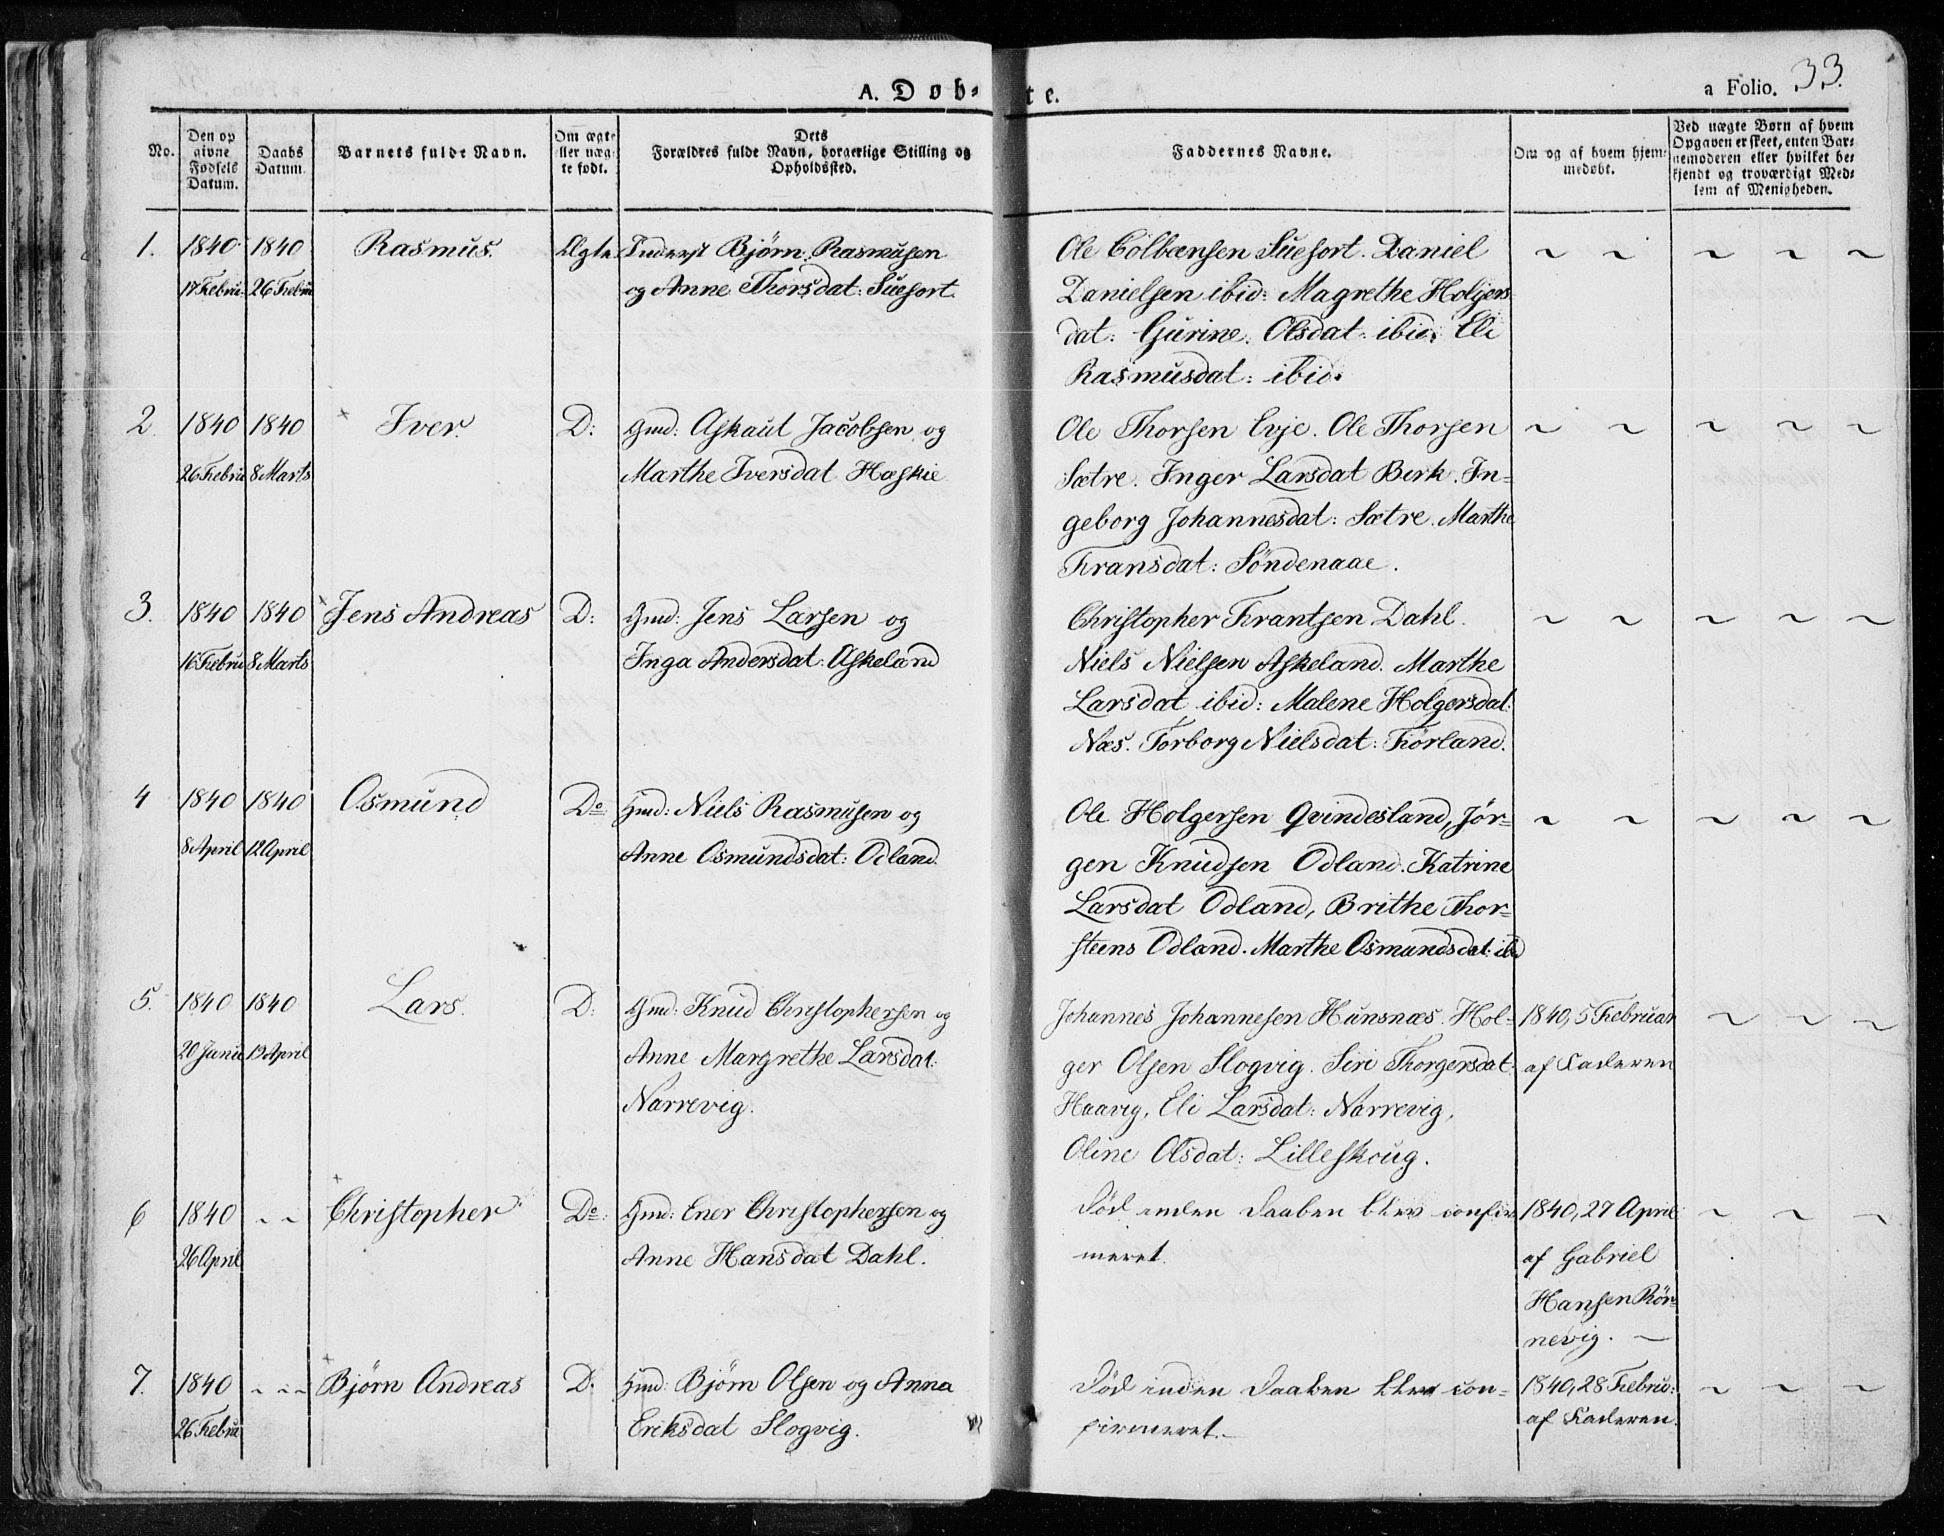 A. Døb- te.
a Folio. 33.
No.
Den op
givne
Fødsels
Datum.
Daabs
Datum.
Barnets fulde Navn.
Om ægte
eller uæg-
te født.
Dets
Forældres fulde Navn, borgerlige Stilling og
Opholdssted.
Faddernes Navne.
Om og af hvem hjem-
medøbt.
Ved uægte Børn af hvem
Opgaven er skeet, enten Bar-
nemoderen eller hvilket be-
kjendt og troværdigt Med-
lem af Menigheden.
1. 1840 1840 Rasmus. Ægte. Inderst Bjørn Rasmusen
17 Febru: 26 Febru og Anne Thorsdat: Suefort.
Ole Colbænsen Suefort. Daniel ~ ~ ~ ~ ~
Danielsen ibid: Magrethe Holgers
dat: Gurine Olsdat: ibid: Eli
Rasmusdat: ibid:
2. 1840 1840 Iver. D: Gmd: Askaut Jacobsen og
26 Febru 8 Marts Marthe Iversdat Hæskie
Ole Thorsen Evje. Ole Thorsen ~ ~ ~ ~ ~
Sætre. Inger Larsdat Berk. In-
geborg Johannesdat: Sætre. Marthe
Fransdat: Söndenaae.
3. 1840 1840 Jens Andreas D: Gmd: Jens Larsen og
16 Febru 8 Marts Inga Andersdat: Askeland
Christopher Frantsen Dahl. ~ ~ ~ ~ ~
Niels Nielsen Askeland. Marthe
Larsdat ibid: Malene Holgersdat:
Næs. Torborg Nielsdat: Förland.
4 1840 1840 Osmund Do Gmd: Niels Rasmusen og
8 April 12 April Anne Osmundsdat: Odland.
Ole Holgersen Qvindesland, Jør- ~ ~ ~ ~ ~
gen Knudsen Odland. Katrine
Larsdat Odland, Brithe Thor-
steens Odland. Marthe Osmundsdat: ibd
5. 1840 1840 Lars. D: Gmd: Knud Christophersen og
20 Janu 19 April Anne Margrethe Larsdat:
Narrevig.
Johannes Johannesen Hunsnæs. Hol- 1840, 5 Februar ~ ~ ~
ger Olsen Slogvig. Siri Thorgersdat: af Faderen
Haavig, Eli Larsdat: Narrevig,
Oline Olsdat: Lilleskoug.
6 1840 - - Christopher Do: Gmd: Ener Christophersen og
26 April Anne Hansdat Dahl.
Död inden Daaben blev confir 1840, 27 April ~ ~ ~
meret. af Gabriel
Hansen Rör-
nevig. —
7. 1840 - - - Bjørn Andreas D. Gmd: Bjørn Olsen og Anna
26 Febru Eriksdat Slogvig.
Död inden Daaben blev con- 1840, 28 Febru: ~ ~ ~
firmeret. af Faderen.